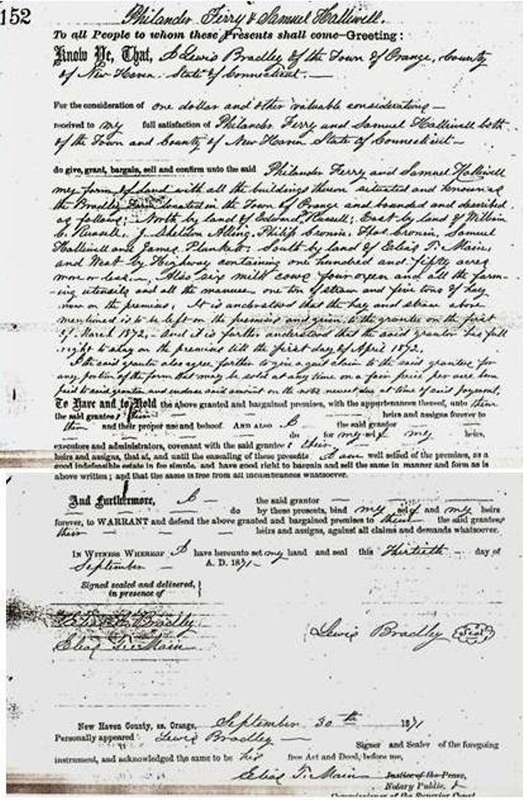 152
Philander Ferry & Samuel Halliwell.
To all People to whom these Presents shall come—Greeting:
Know Ye, That, I Lewis Bradley of the Town of Orange, County
of New Haven. State of Connecticut.
For the consideration of one dollar and other valuable considerations
received to my full satisfaction of Philander Ferry and Samuel Halliwell both
of the Town and County of New Haven State of Connecticut
do give, grant, bargain, sell and confirm unto the said Philander Ferry and Samuel Halliwell
my farm of land with all the buildings thereon situated and known as
the Bradley Farm located in the Town of Orange and bounded and described
as follows: North by land of Edward Russell; East by land of
Russell. J. Sheldon Alling, Philip Cronin, Thos. Cronin, Samuel
Halliwell and James Plunkett. South by land of Elias T. Main,
and West by Highway containing one hundred and fifty acres
more or less. Also six milk cows four oxen and all the farm-
ing and all the manure. one ton of straw and five tons of hay
now on the premises. It is understood that the hay and straw above
mentioned is to be left on the premises and given to the grantee on the first
of March 1872. And it is further understood that the said grantor has full
right to stay on the premises till the first day of April 1872.
the said grantor also agree further to give a quit claim to the said grantees for
any portion of the farm that may be sold at any time on a fair price per acre
paid to said grantor and said amount on the note at time of said payment.
To Have and to Hold the above granted and bargained premises, with the appurtenances thereof, unto them
the said grantees their heirs and assigns forever to
them and their proper use and behoof. AND ALSO I the said grantor
do for my self my heirs,
executors and administrators, covenant with the said grantees their
heirs and assigns, that at, and until the ensealing of these presents I am well seized of the premises, as a
good indefeasible estate in fee simple, and have good right to bargain and sell the same in manner and form as is
above written; and that the same is free from all incumbrances whatsoever.
And Furthermore, I the said grantor
do by these presents, bind my self and my heirs
forever, to WARRANT and defend the above granted and bargained premises to them the said grantees
their heirs and assigns, against all claims and demands whatsoever.
IN WITNESS WHEREOF I have hereunto set my hand and seal this thirtieth day of
September A. D. 1871
Signed sealed and delivered,
in presence of
Bradley
Elias T. Main
Lewis Bradley Seal
New Haven County, ss. Orange, September 30th 1871
Personally appeared Lewis Bradley
Signer and Sealer of the foregoing
instrument, and acknowledged the same to be his free Act and Deed, before me,
Elias T. Main Justice of the Peace,
Notary Public,
Commissioner of the Superior Court